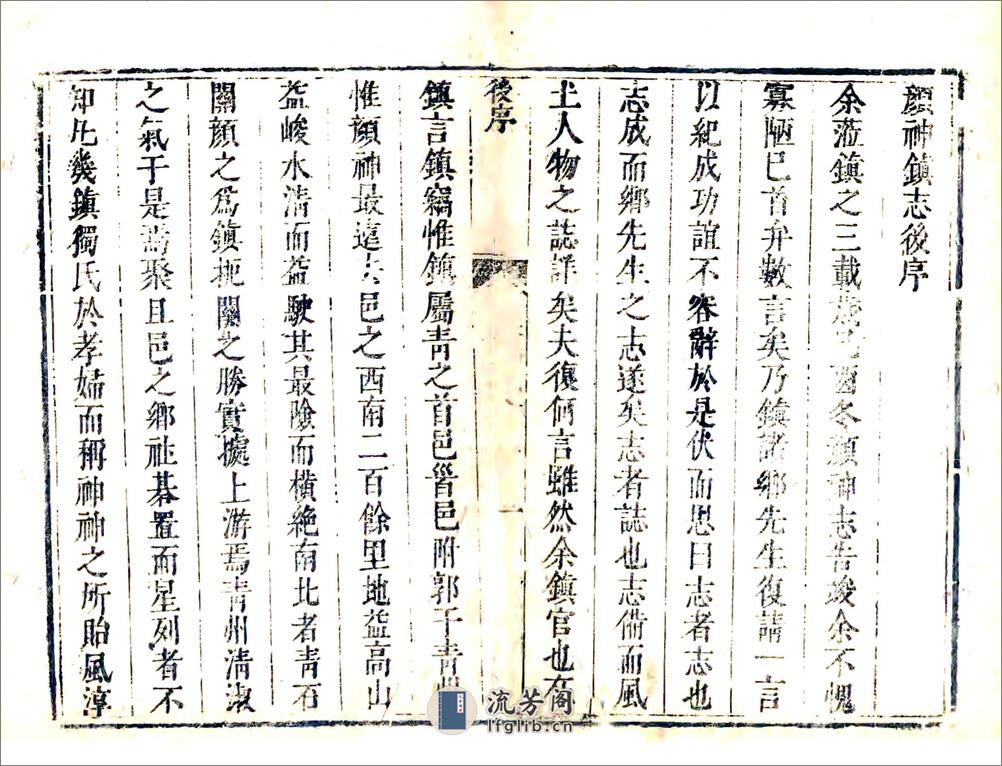 顏神鎮志後序
余蒞鎮之三載歲酉冬顏神志告竣余不愧
寡陋已首弁數言矣乃鎮諸鄉先生復請一言
以紀成功誼不容辭於是伏而思曰志者志也
志成而鄉先生之志遂矣志者誌也志備而風
土人物之誌詳矣夫復何言雖然余鎮官也在
後序
一
鎮言鎮竊惟鎮屬青之首邑晉邑附郭于青
惟顏神最遠去邑之西南二百餘里地益高山
益峻水清而益駛其最險而橫絶南北者青石
關顏之為鎮扼關之勝實據上游焉青州清淑
之氣于是焉聚且邑之鄉社碁置而星列者不
知凡幾鎮獨氏於孝婦而稱神神之所貽風淳
流芳阁
lfglib.cn